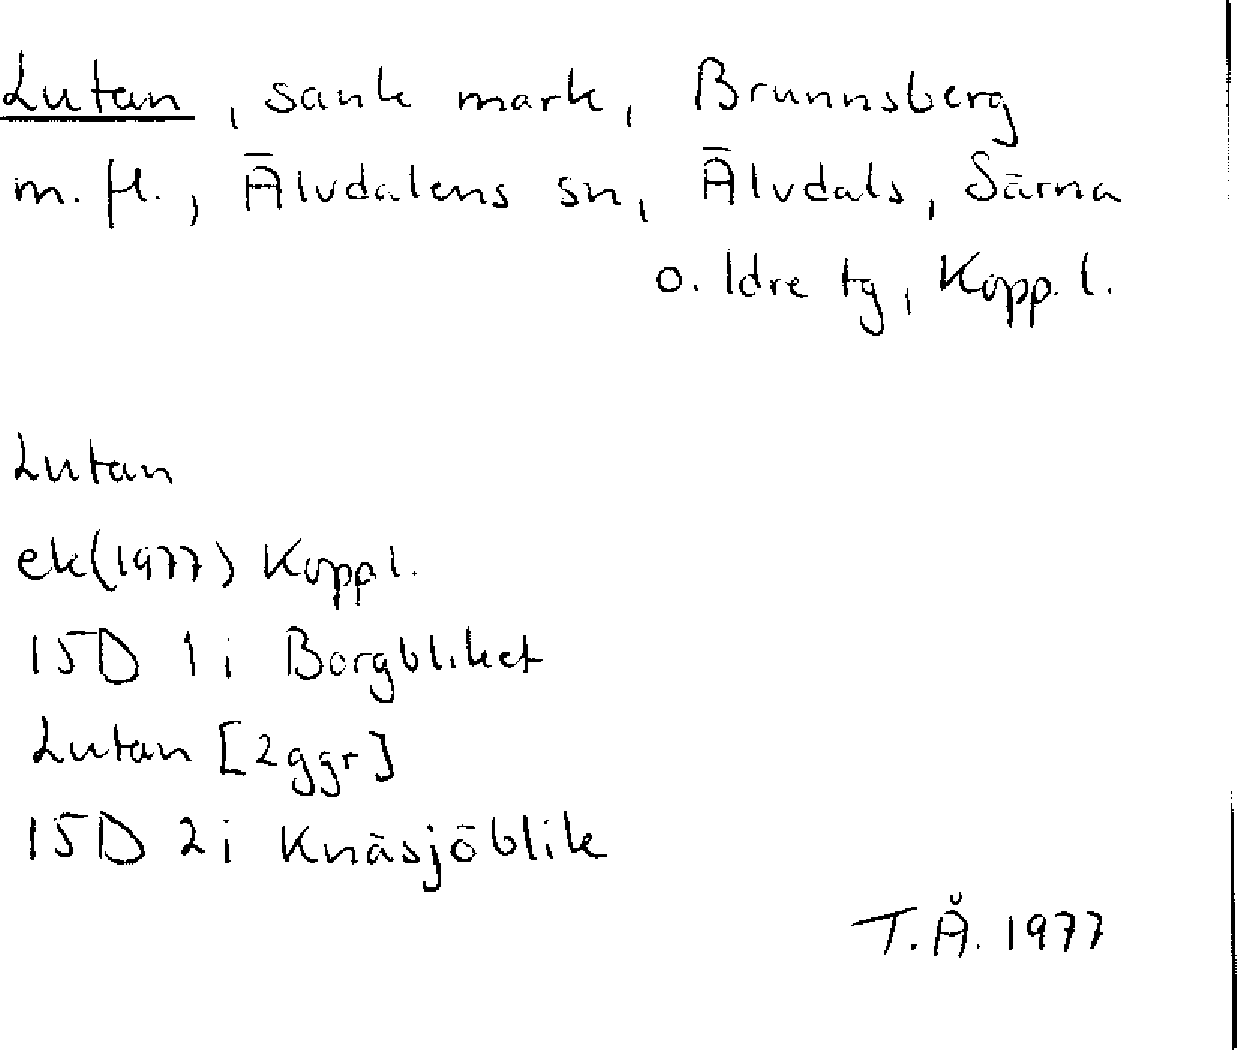 Lutan, sank mark, Brunnsberg
m. fl., Älvdalens sn, Älvdals, Särna
o. Idre tg, Kopp. l.
Lutan
ek(1977) Kopp l.
15D 1 i Borgbliket
Lutan [2ggr]
15D 2 i Knäsjöblik
T.Å. 1977